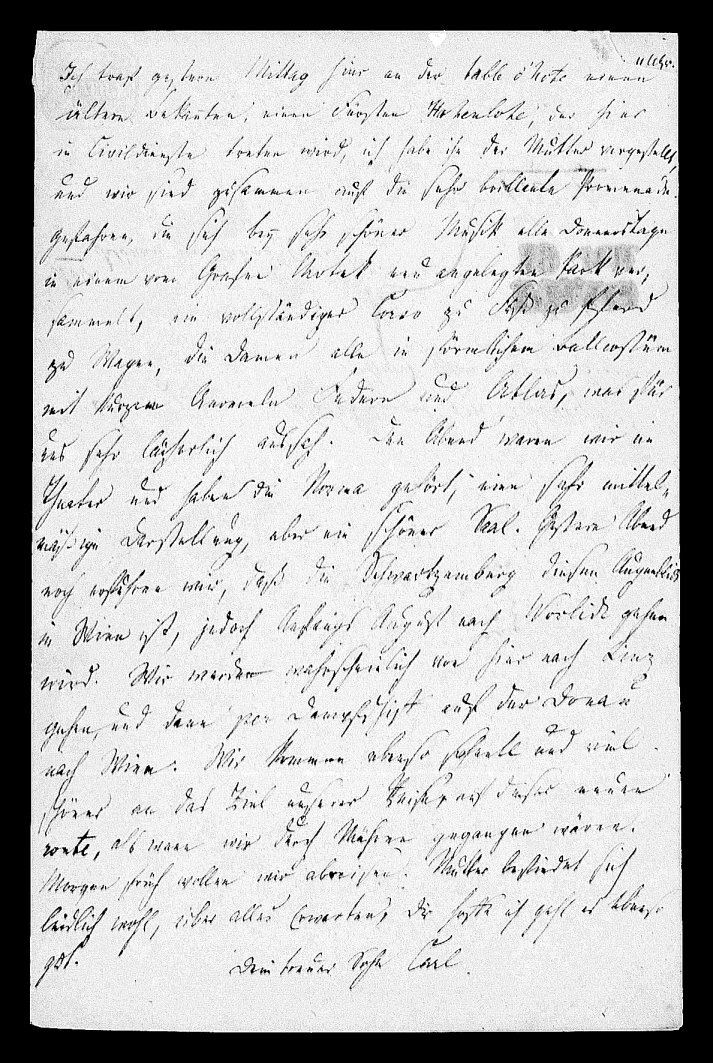 Ich traf gestern Mittag hier an der table d'hote einen
ältern Bekannten, einen Fürsten Hohenlohe, der hier
in Civildienste treten wird, ich habe ihn der Mutter vorgestellt,
und wir sind zusammen auf die sehr brillente Promenade
gefahren, die sich bey sehr schöner Musik alle Donnerstage
in einem vom Grafen Chotek neu angelegten Park ver,
sammelt, ein vollständiger Corso zu Fuß zu Pferd
zu Wagen, die Damen alle in förmlichem Ballcostüm
mit kurzen Aermeln Federn und Atlas, was für
uns sehr lächerlich aussah. Den Abend waren wir im
Theater und haben die Norma gehört, eine sehr mittel„
mäßige Darstellung, aber ein schöner Saal. Gestern Abend
noch erfuhren wir, daß die Schwartzemberg diesen Augenblick
in Wien ist, jedoch Anfangs August nach Worlick gehen
wird. Wir werden wahrscheinlich von hier nach Linz
gehen, und dann per Dampfschiff auf der Donau
nach Wien. Wir kommen ebenso schnell und viel
schöner an das Ziel unserer Reise, auf dieser neuen
route, als wenn wir durch Mähren gegangen wären.
Morgen früh wollen wir abreisen. Mutter befindet sich
leidlich wohl, über alles Erwarten, Dir hoffe ich geht es ebenso
gut.
Dein treuer Sohn Carl.